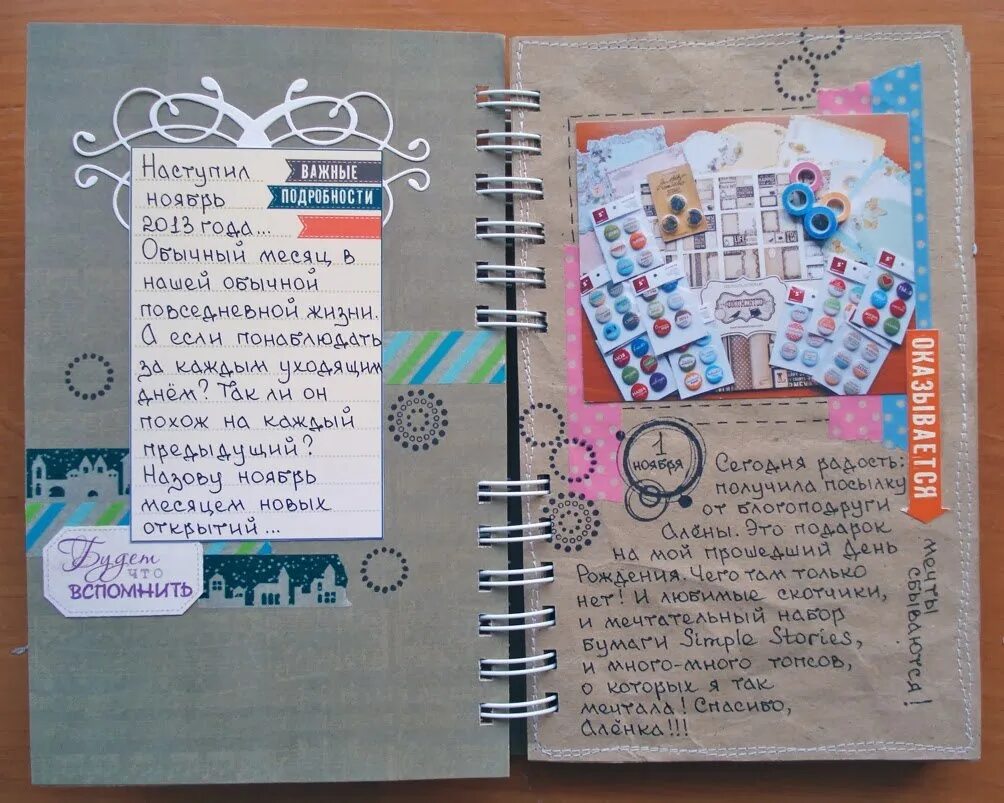 Наступил
ВАЖНЫЕ
ноябрь
ПОДРОБНОСТИ
2013 года...
Обычный месяц в
нашей обычной
повседневной жизни.
А если понаблюдать
за каждым уходящим
днём? Так ли он
похож на каждый
предыдущий?
Назову ноябрь
месяцем новых
открытий...
Будет
что
ВСПОМНИТЬ
ОКАЗЫВАЕТСЯ
мечты
сбываются!
1
НОЯБРЯ
Сегодня радость:
получила посылку
от блогоподруги
Алёны. Это подарок
на мой прошедший День
Рождения. Чего там только
нет! И любимые скотчики,
и мечтательный набор
бумаги Simple Stories,
и много-много топсов,
о которых я так
мечтала! Спасибо,
Алёнка!!!